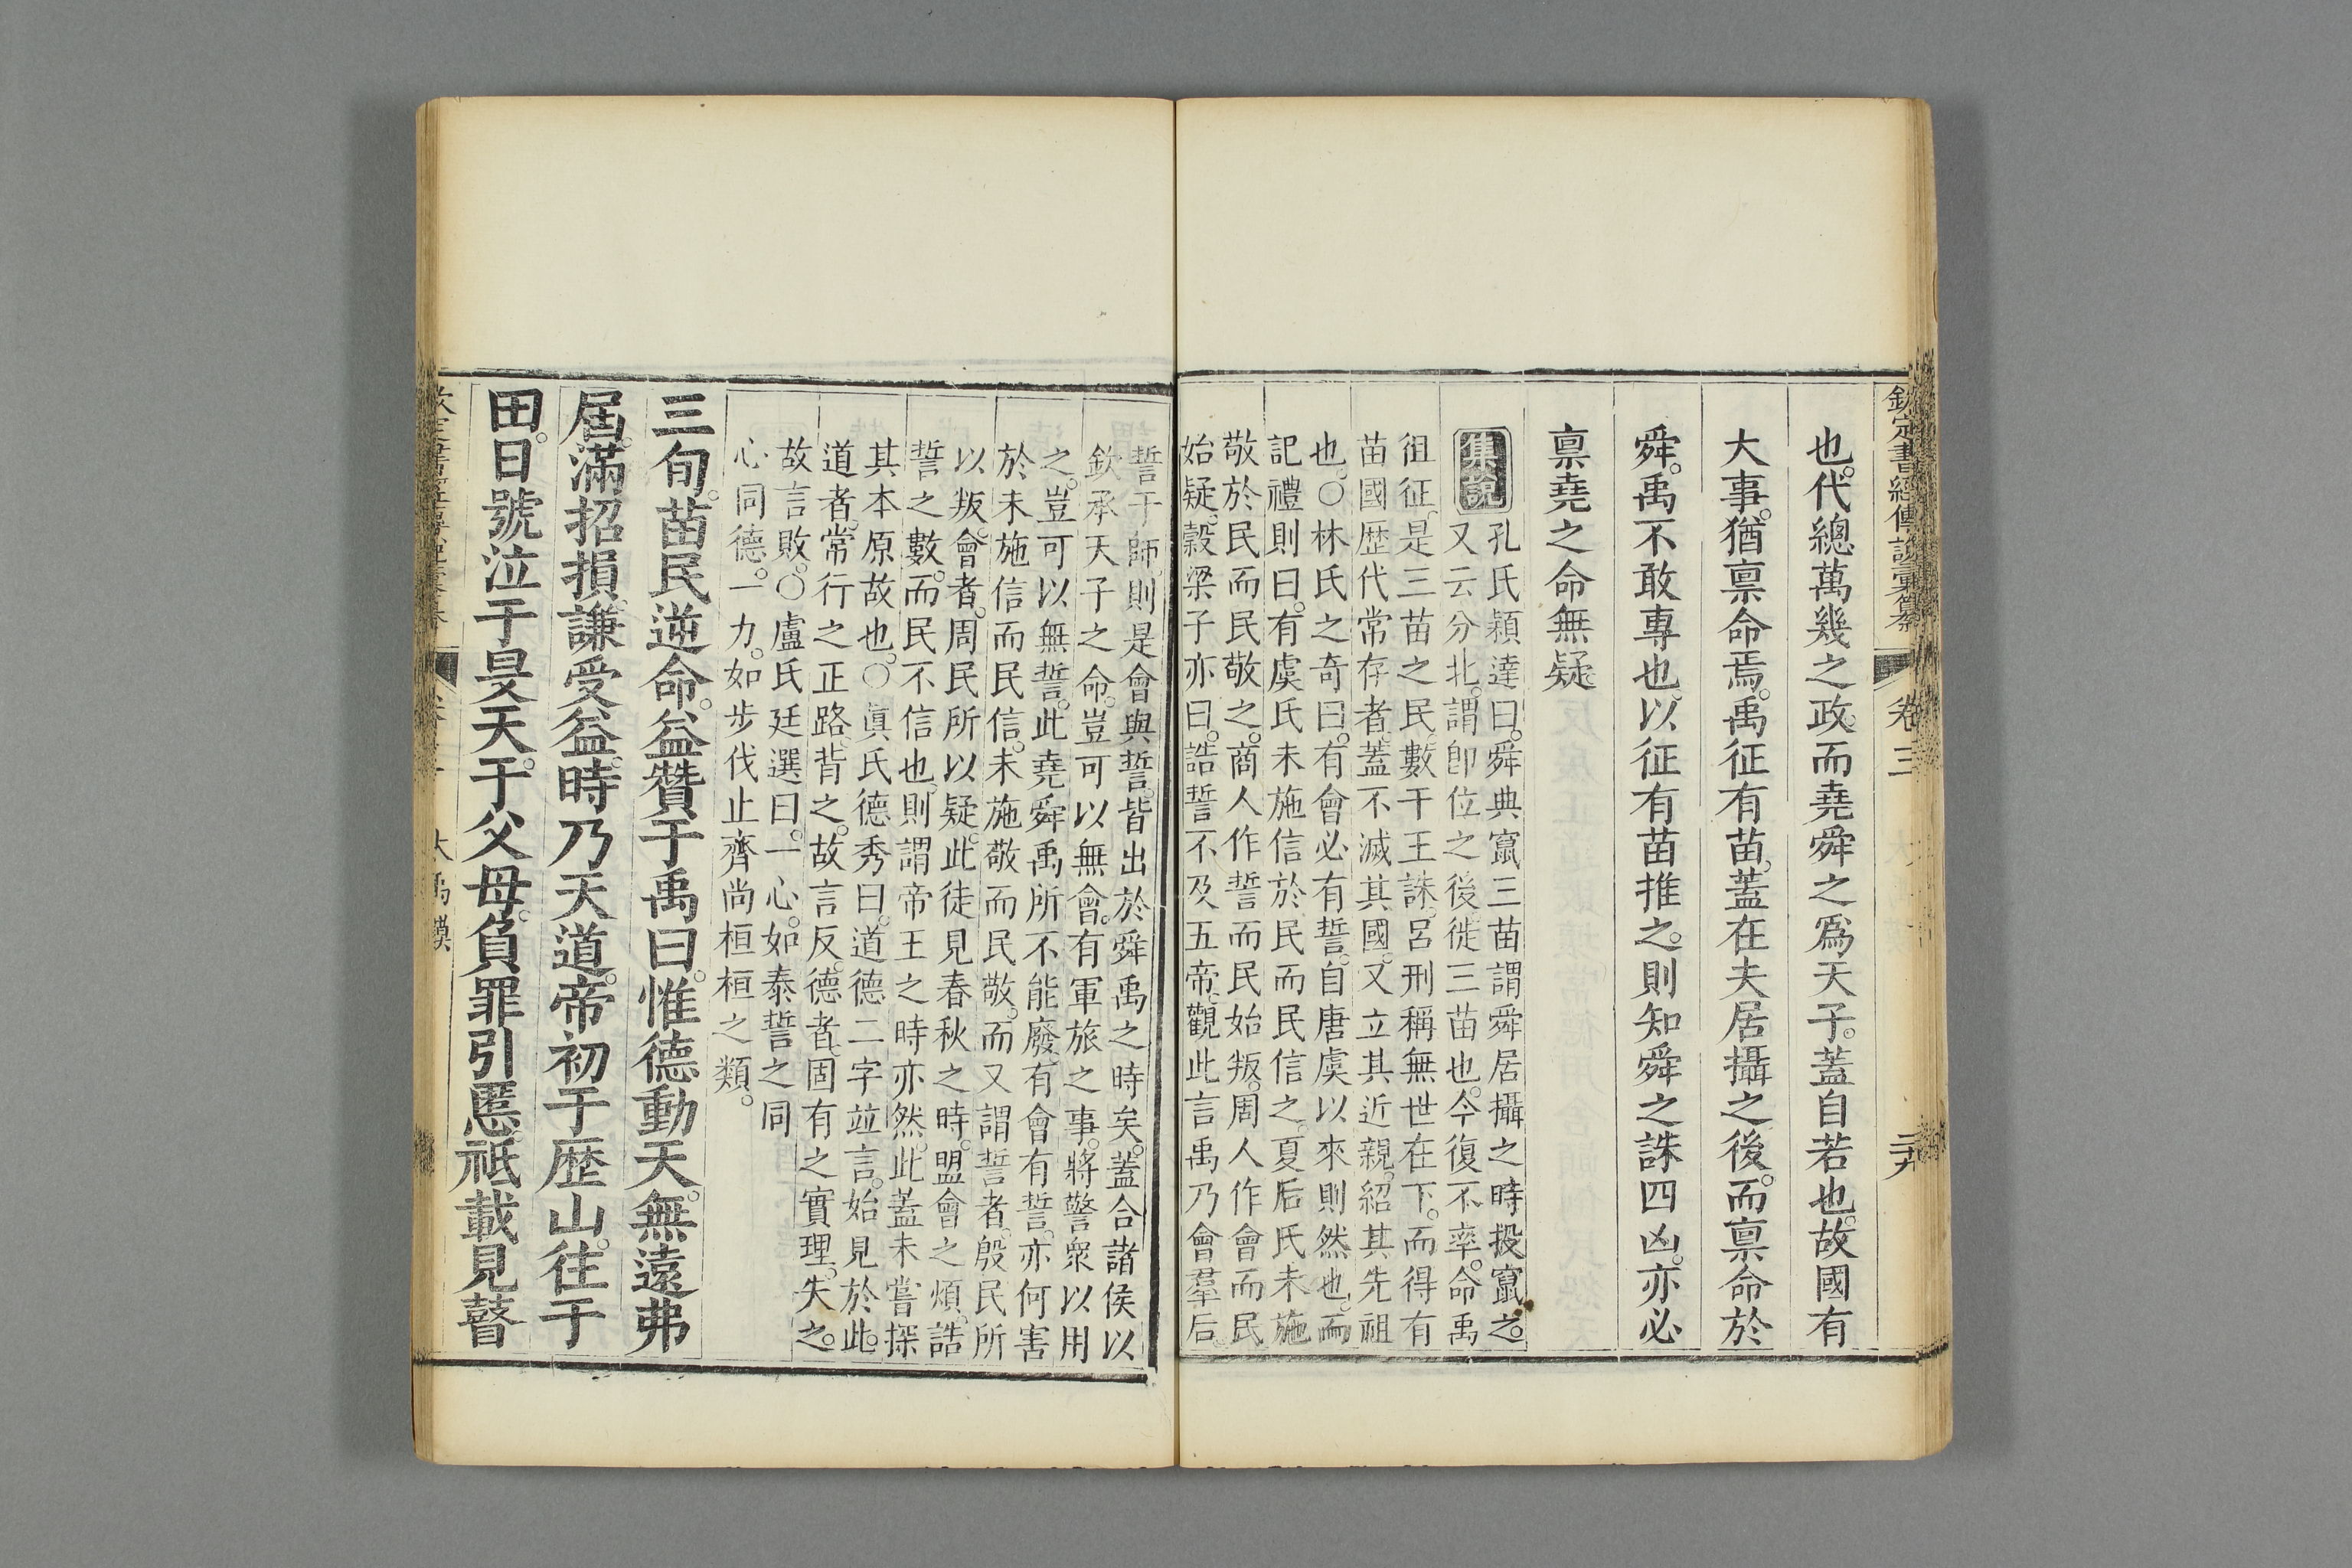 欽定書經傳說彙纂 卷三 二十九
也。代總萬幾之政。而堯舜之爲天子。蓋自若也。故國有
大事。猶禀命焉。禹征有苗。蓋在夫居攝之後。而禀命於
舜。禹不敢專也。以征有苗推之。則知舜之誅四凶。亦必
禀堯之命無疑
集說
孔氏穎達曰。舜典竄三苗謂舜居攝之時投竄之。
又云分北。謂卽位之後。徙三苗也。今復不率。命禹
徂征。是三苗之民。數干王誅。呂刑稱無世在下。而得有
苗國歷代常存者。蓋不滅其國。又立其近親。紹其先祖
也。○林氏之奇曰。有會必有誓。自唐虞以來則然也。而
記禮則曰。有虞氏未施信於民而民信之。夏后氏未施
敬於民而民敬之。商人作誓而民始叛。周人作會而民
始疑。穀梁子亦曰。誥誓不及五帝。觀此言禹乃會羣后。
誓于師。則是會與誓。皆出於舜禹之時矣。蓋合諸侯以
欽承天子之命。豈可以無會。有軍旅之事。將警衆以用
之。豈可以無誓。此堯舜禹所不能廢。有會有誓。亦何害
於未施信而民信。未施敬而民敬。而又謂誓者。殷民所
以叛。會者。周民所以疑。此徒見春秋之時。盟會之煩。誥
誓之數。而民不信也。則謂帝王之時亦然。此蓋未嘗探
其本原故也。○眞氏德秀曰。道德二字竝言。始見於此。
道者。常行之正路。背之。故言反。德者。固有之實理。失之。
故言敗。○盧氏廷選曰。一心。如泰誓之同
心同德。一力。如步伐止齊尚桓桓之類。
三旬。苗民逆命。益贊于禹曰。惟德動天。無遠弗
屆。滿招損。謙受益。時乃天道。帝初于歷山。往于
田。日號泣于旻天。于父母。負罪引慝。祗載見瞽
大禹謨